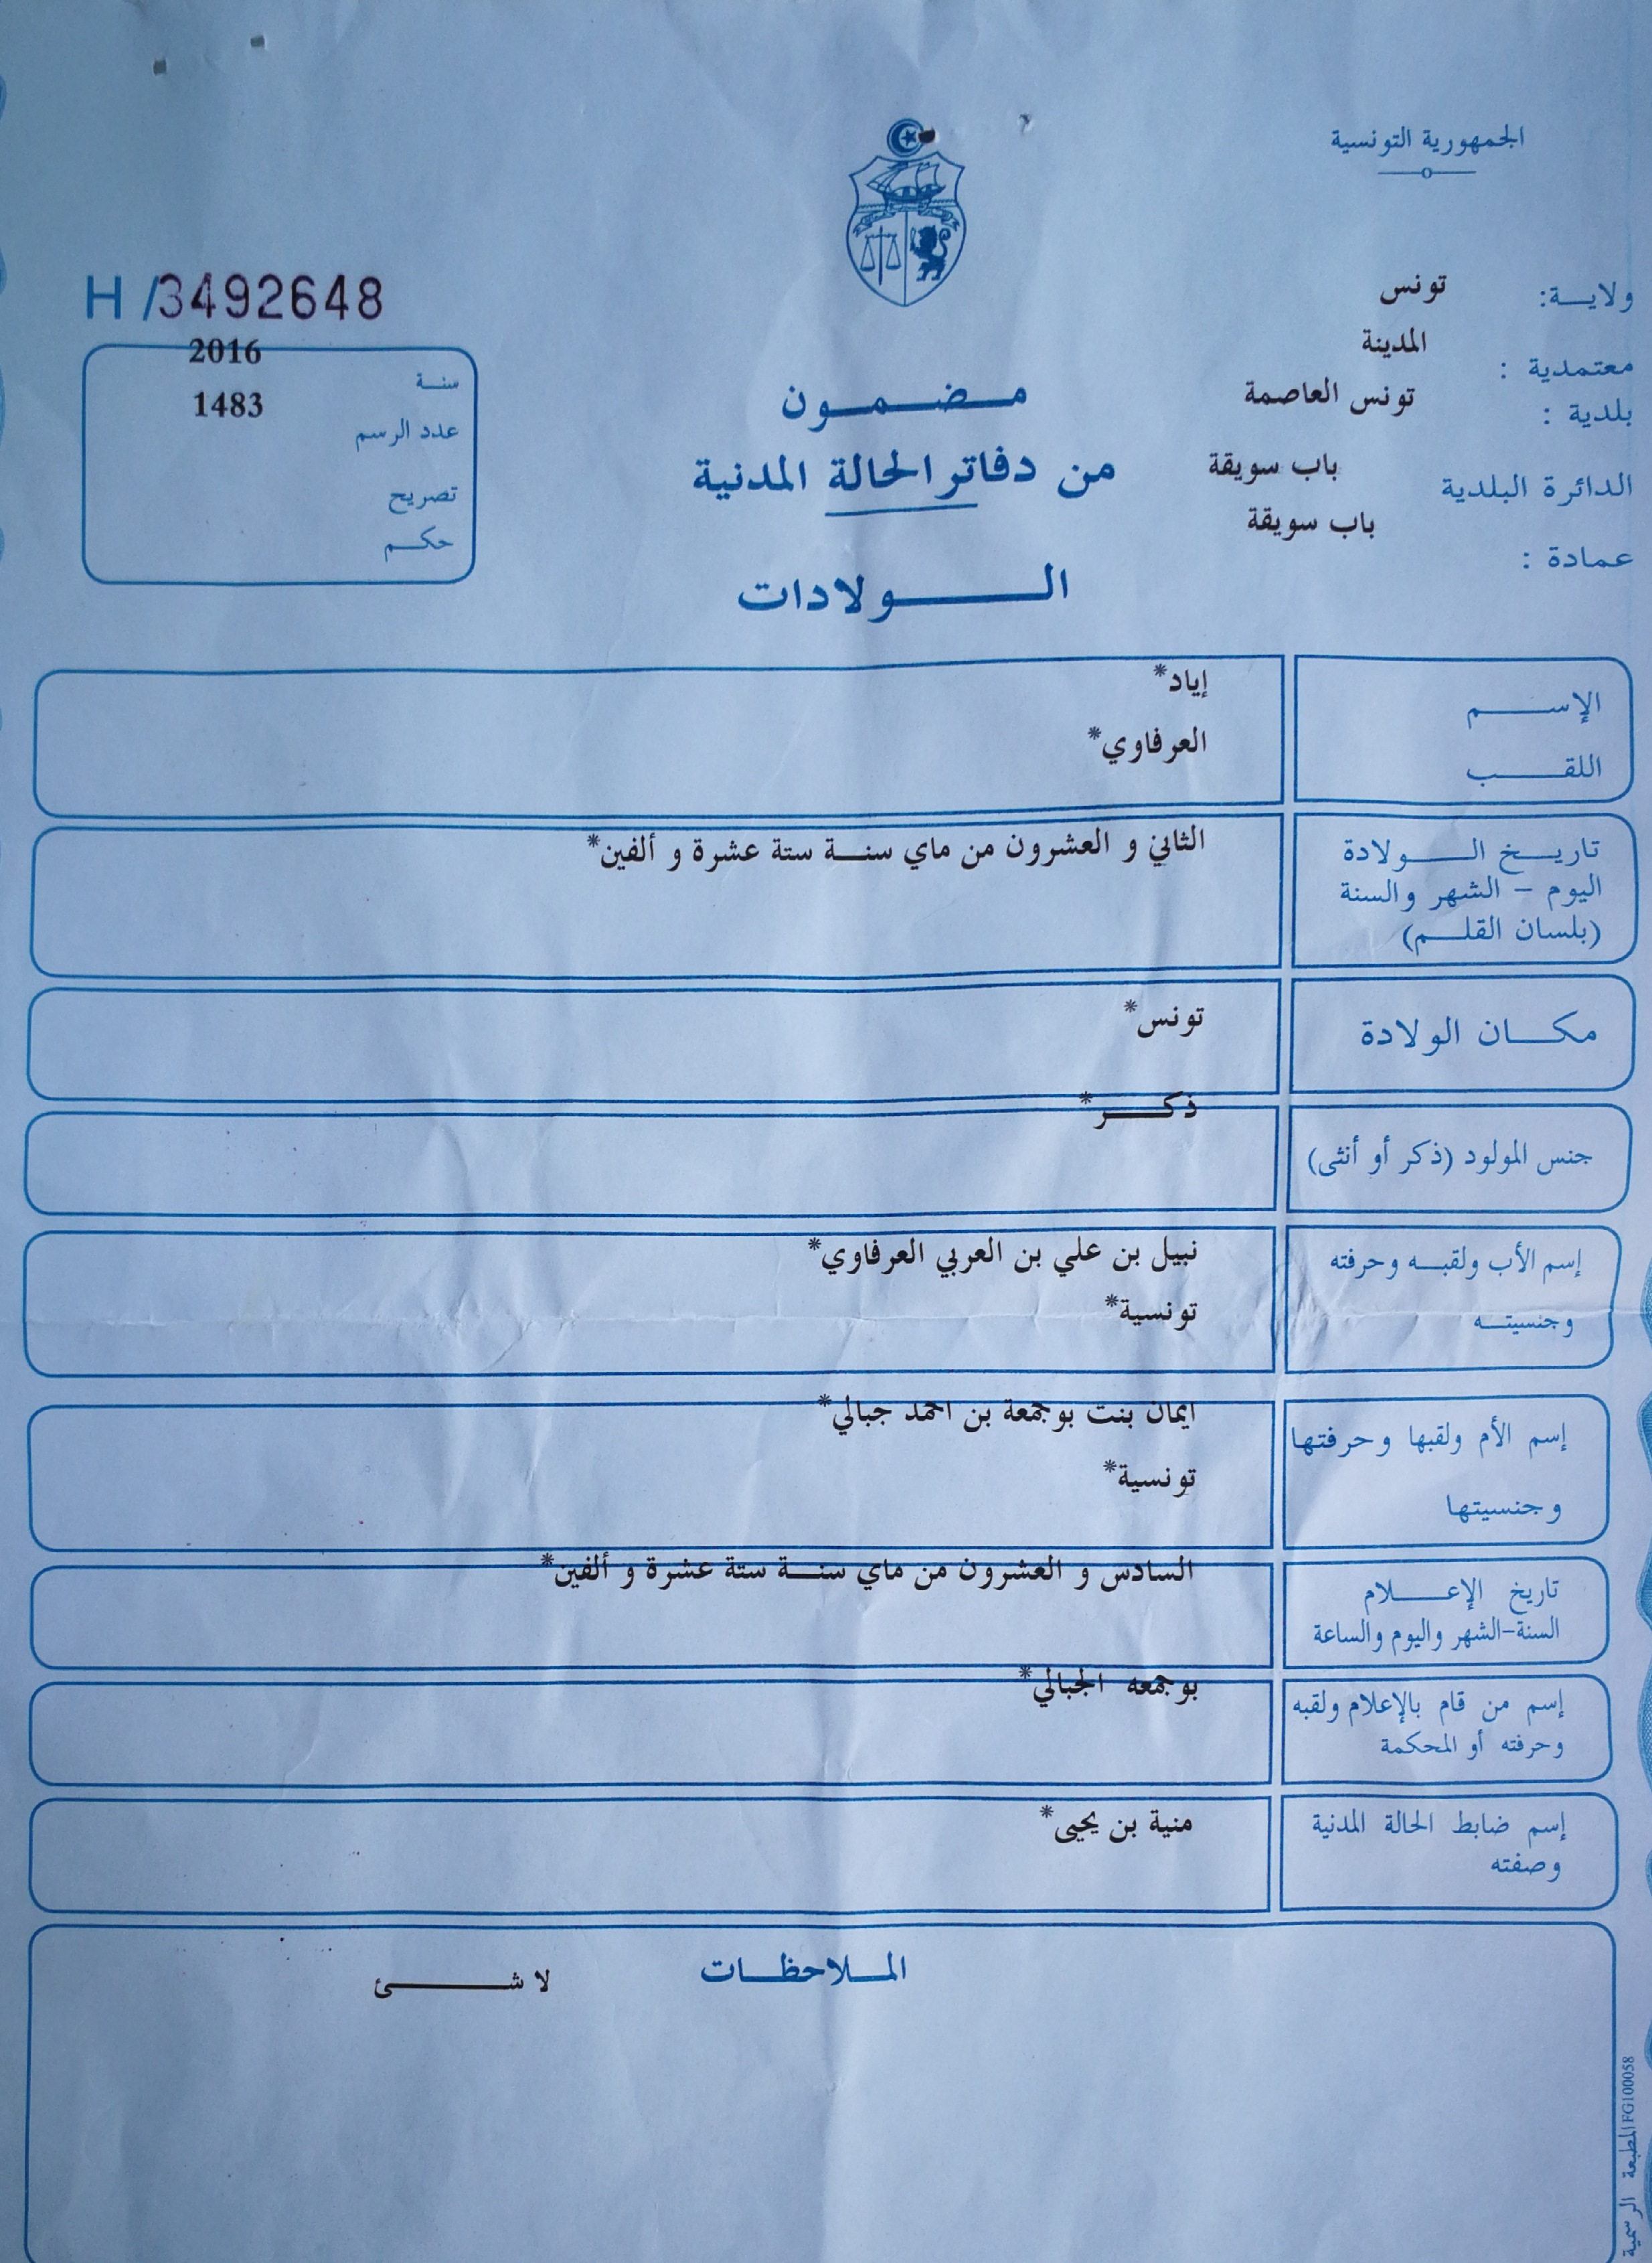 الجمهورية التونسية
ولايـــة: تونس
معتمدية : المدينة
بلدية : تونس العاصمة
الدائرة البلدية باب سويقة
عمادة : باب سويقة
H/3492648
سنـة 2016
عدد الرسم 1483
تصريح
حكـم
مـضـمـون
من دفاتر الحالة المدنية
الـولادات
الإســـم إياد*
اللقـــب العرفاوي*
تاريـخ الـــولادة الثاني و العشرون من ماي سنـة ستة عشرة و ألفين*
اليوم - الشهر والسنة
(بلسان القلـم)
مكـــان الولادة تونس*
جنس المولود (ذكر أو أنثى) ذكـــر*
إسم الأب ولقبـه وحرفته نبيل بن علي بن العربي العرفاوي*
وجنسيتـه تونسية*
إسم الأم ولقبها وحرفتها ايمان بنت بوجمعة بن احمد جبالي*
وجنسيتها تونسية*
تاريخ الإعـــلام السادس و العشرون من ماي سنـة ستة عشرة و ألفين*
السنة-الشهر واليوم والساعة
إسم من قام بالإعلام ولقبه بوجمعه الجبالي*
وحرفته أو المحكمة
إسم ضابط الحالة المدنية منية بن يحيى*
وصفته
المـلاحظـات
لا شـــئ
المطبعة الرسمية FG100058